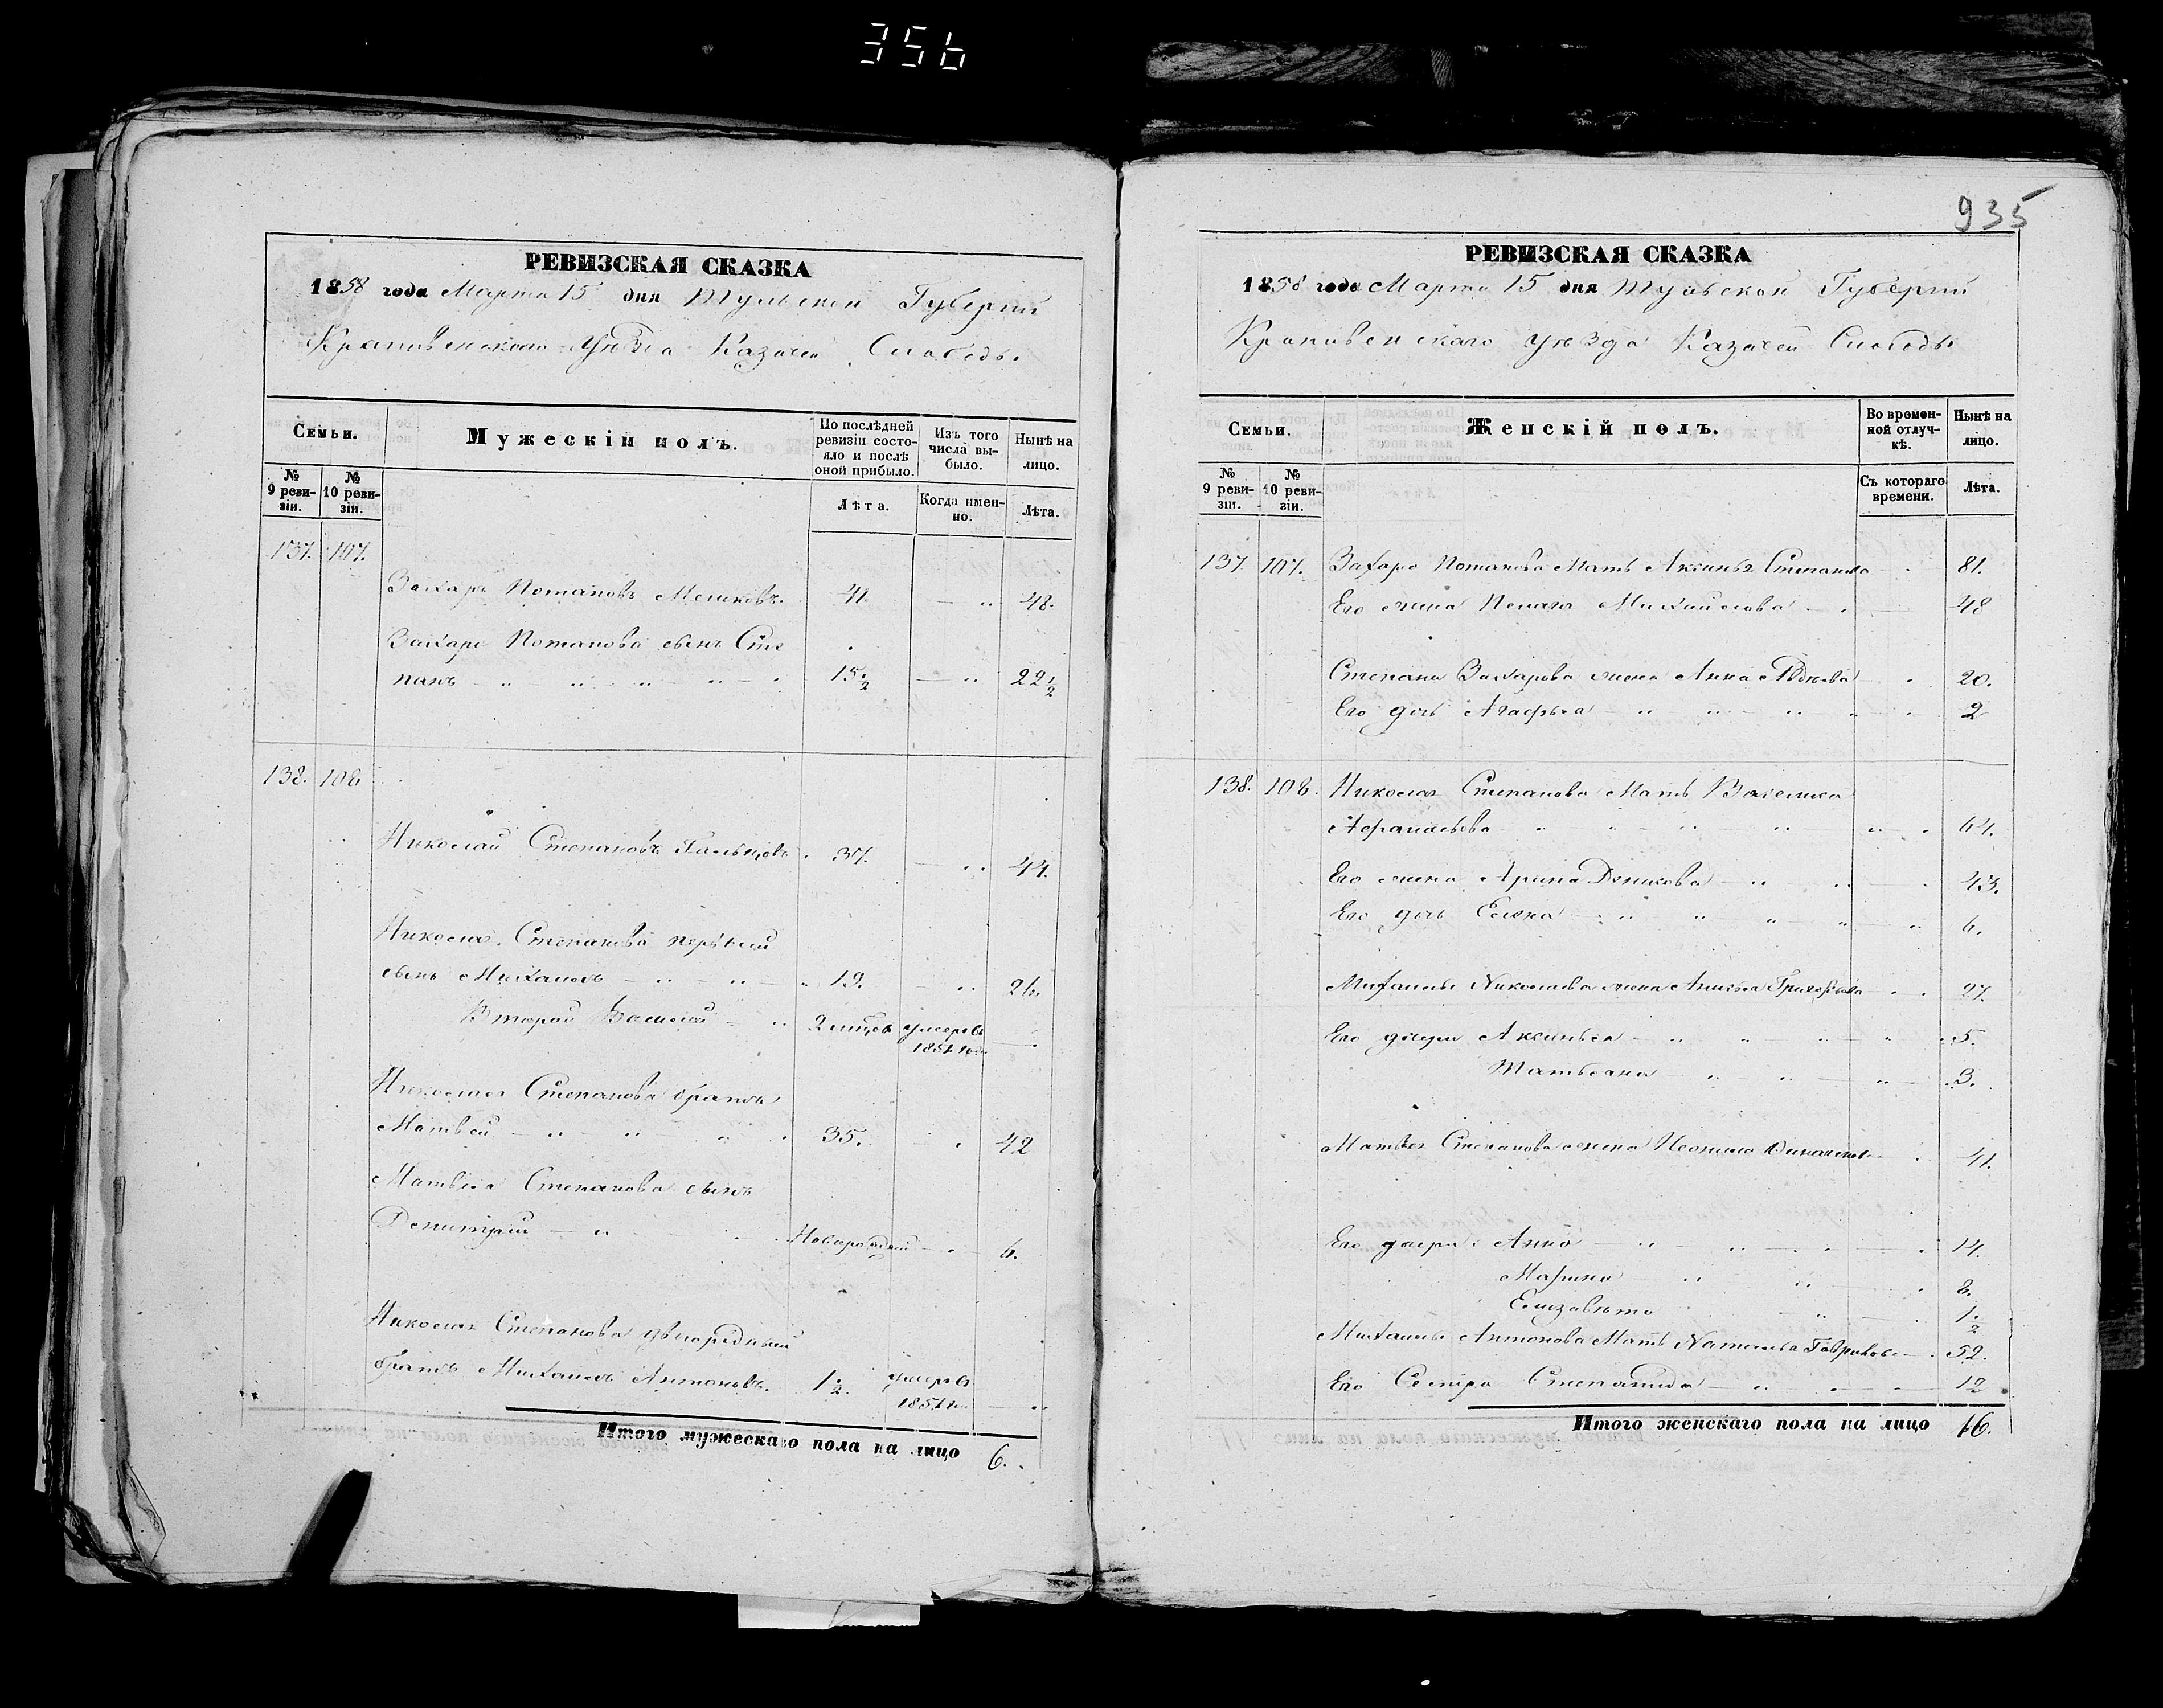 356
РЕВИЗСКАЯ СКАЗКА
1858 года Марта 15 дня Тульской Губернии
Крапивенскаго Уѣзда Казачей Слободы.
Семьи.
Мужескій полъ.
По послѣдней ревизіи состояло и послѣ оной прибыло.
Изъ того числа выбыло.
Нынѣ на лицо.
№ 9 ревизіи.
№ 10 ревизіи.
Лѣта.
Когда именно.
Лѣта.
137. 107.
Захаръ Потаповъ 41. 48.
Захара Потапова сынъ Сте
панъ 15 1/2 22 1/2
138. 108
Николай Степановъ 37. 44.
Николая Степанова первый
сынъ Михаилъ 19. 26.
Второй Василий умеръ
Николая Степанова братъ
Матвей 35. 42
Матвея Степанова сынъ
Дмитрий 6.
Николая Степанова двоюродный
братъ Михаилъ Антоновъ. 1 1/2. умеръ
Итого мужескаго пола на лицо 6.
935
РЕВИЗСКАЯ СКАЗКА
1858 года Марта 15 дня Тульской Губернии
Крапивенскаго Уѣзда Казачей Слободы
Семьи.
Женскій полъ.
Во временной отлучкѣ.
Нынѣ на лицо.
№ 9 ревизіи.
№ 10 ревизіи.
Съ котораго времени.
Лѣта.
137. 107. Захара Потапова Мать Аксинья Степанова 81.
Его жена Михайлова 48
Степана Захарова жена Анна 20.
Его дочь Агафья 2
138. 108. Николая Степанова Мать Василиса
64.
Его жена Арина 43.
Его дочь Елена 6.
Михаилы Николаева жена Анисья Григорьева 27.
Его дочери Аксинья 5.
Татьяна 3.
Матвея Степанова жена 41.
Его дочери Анна 14.
Марина 8.
Елизавета 1 1/2
Михаилы Антонова Мать Наталья 52.
Его Сестра Степанида 12
Итого женскаго пола на лицо 16.